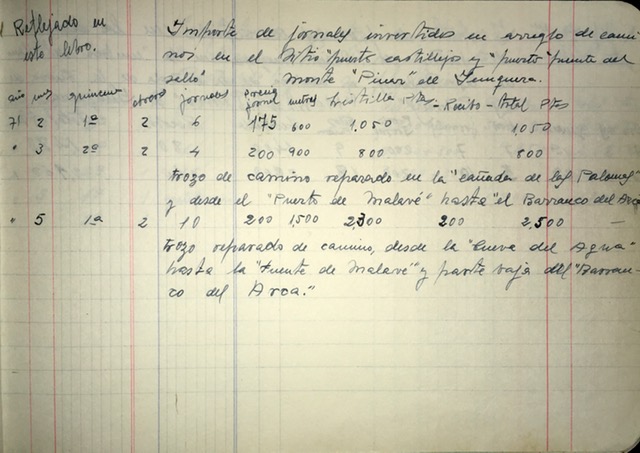 Reflejado en
este libro.
Importe de jornales invertidos en arreglo de cami-
nos en el Sitio "puerto castillejos y "puerto" puente del
monte "Pinar" de Yunquera.
año mes quincena obreros jornales precio jornal metros Ptas - Recibo - total Ptas
71 2 1ª 2 6 175 600 1,050 1,050
" 3 2ª 2 4 200 900 800 800
trozo de camino reparado en la "cañada de las Palomas"
y desde el "Puerto de Malavé" hasta "el Barranco del Arca
" 5 1ª 2 10 200 1,500 2,300 200 2,500 —
trozo reparado de camino, desde la "Cueva del Agua"
hasta la "Fuente de Malavé" y parte baja del "Barran-
co del Arca."